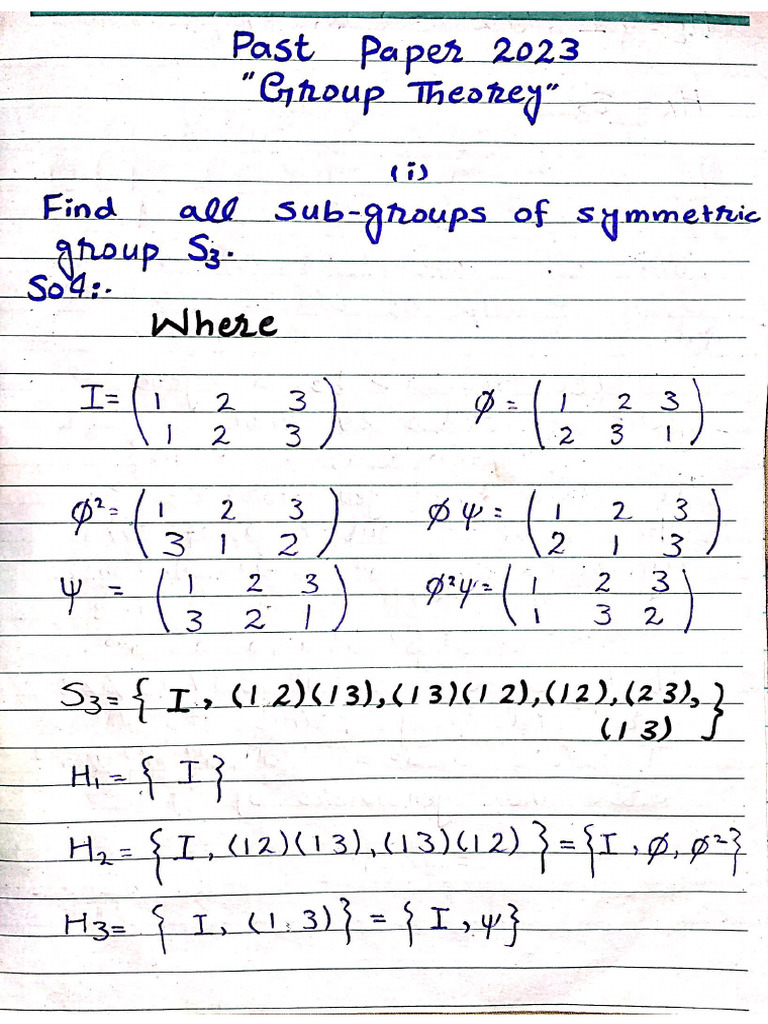 Past Paper 2023
"Group Theorey"
(i)
Find all sub-groups of symmetric
group S₃.
Sol:.
Where
I = ( 1 2 3 ) φ = ( 1 2 3 )
( 1 2 3 ) ( 2 3 1 )
φ² = ( 1 2 3 ) φψ = ( 1 2 3 )
( 3 1 2 ) ( 2 1 3 )
ψ = ( 1 2 3 ) φ²ψ = ( 1 2 3 )
( 3 2 1 ) ( 1 3 2 )
S₃ = { I, (1 2)(1 3), (1 3)(1 2), (1 2), (2 3),
(1 3) }
H₁ = { I }
H₂ = { I, (12)(13), (13)(12) } = { I, φ, φ² }
H₃ = { I, (1 3) } = { I, ψ }